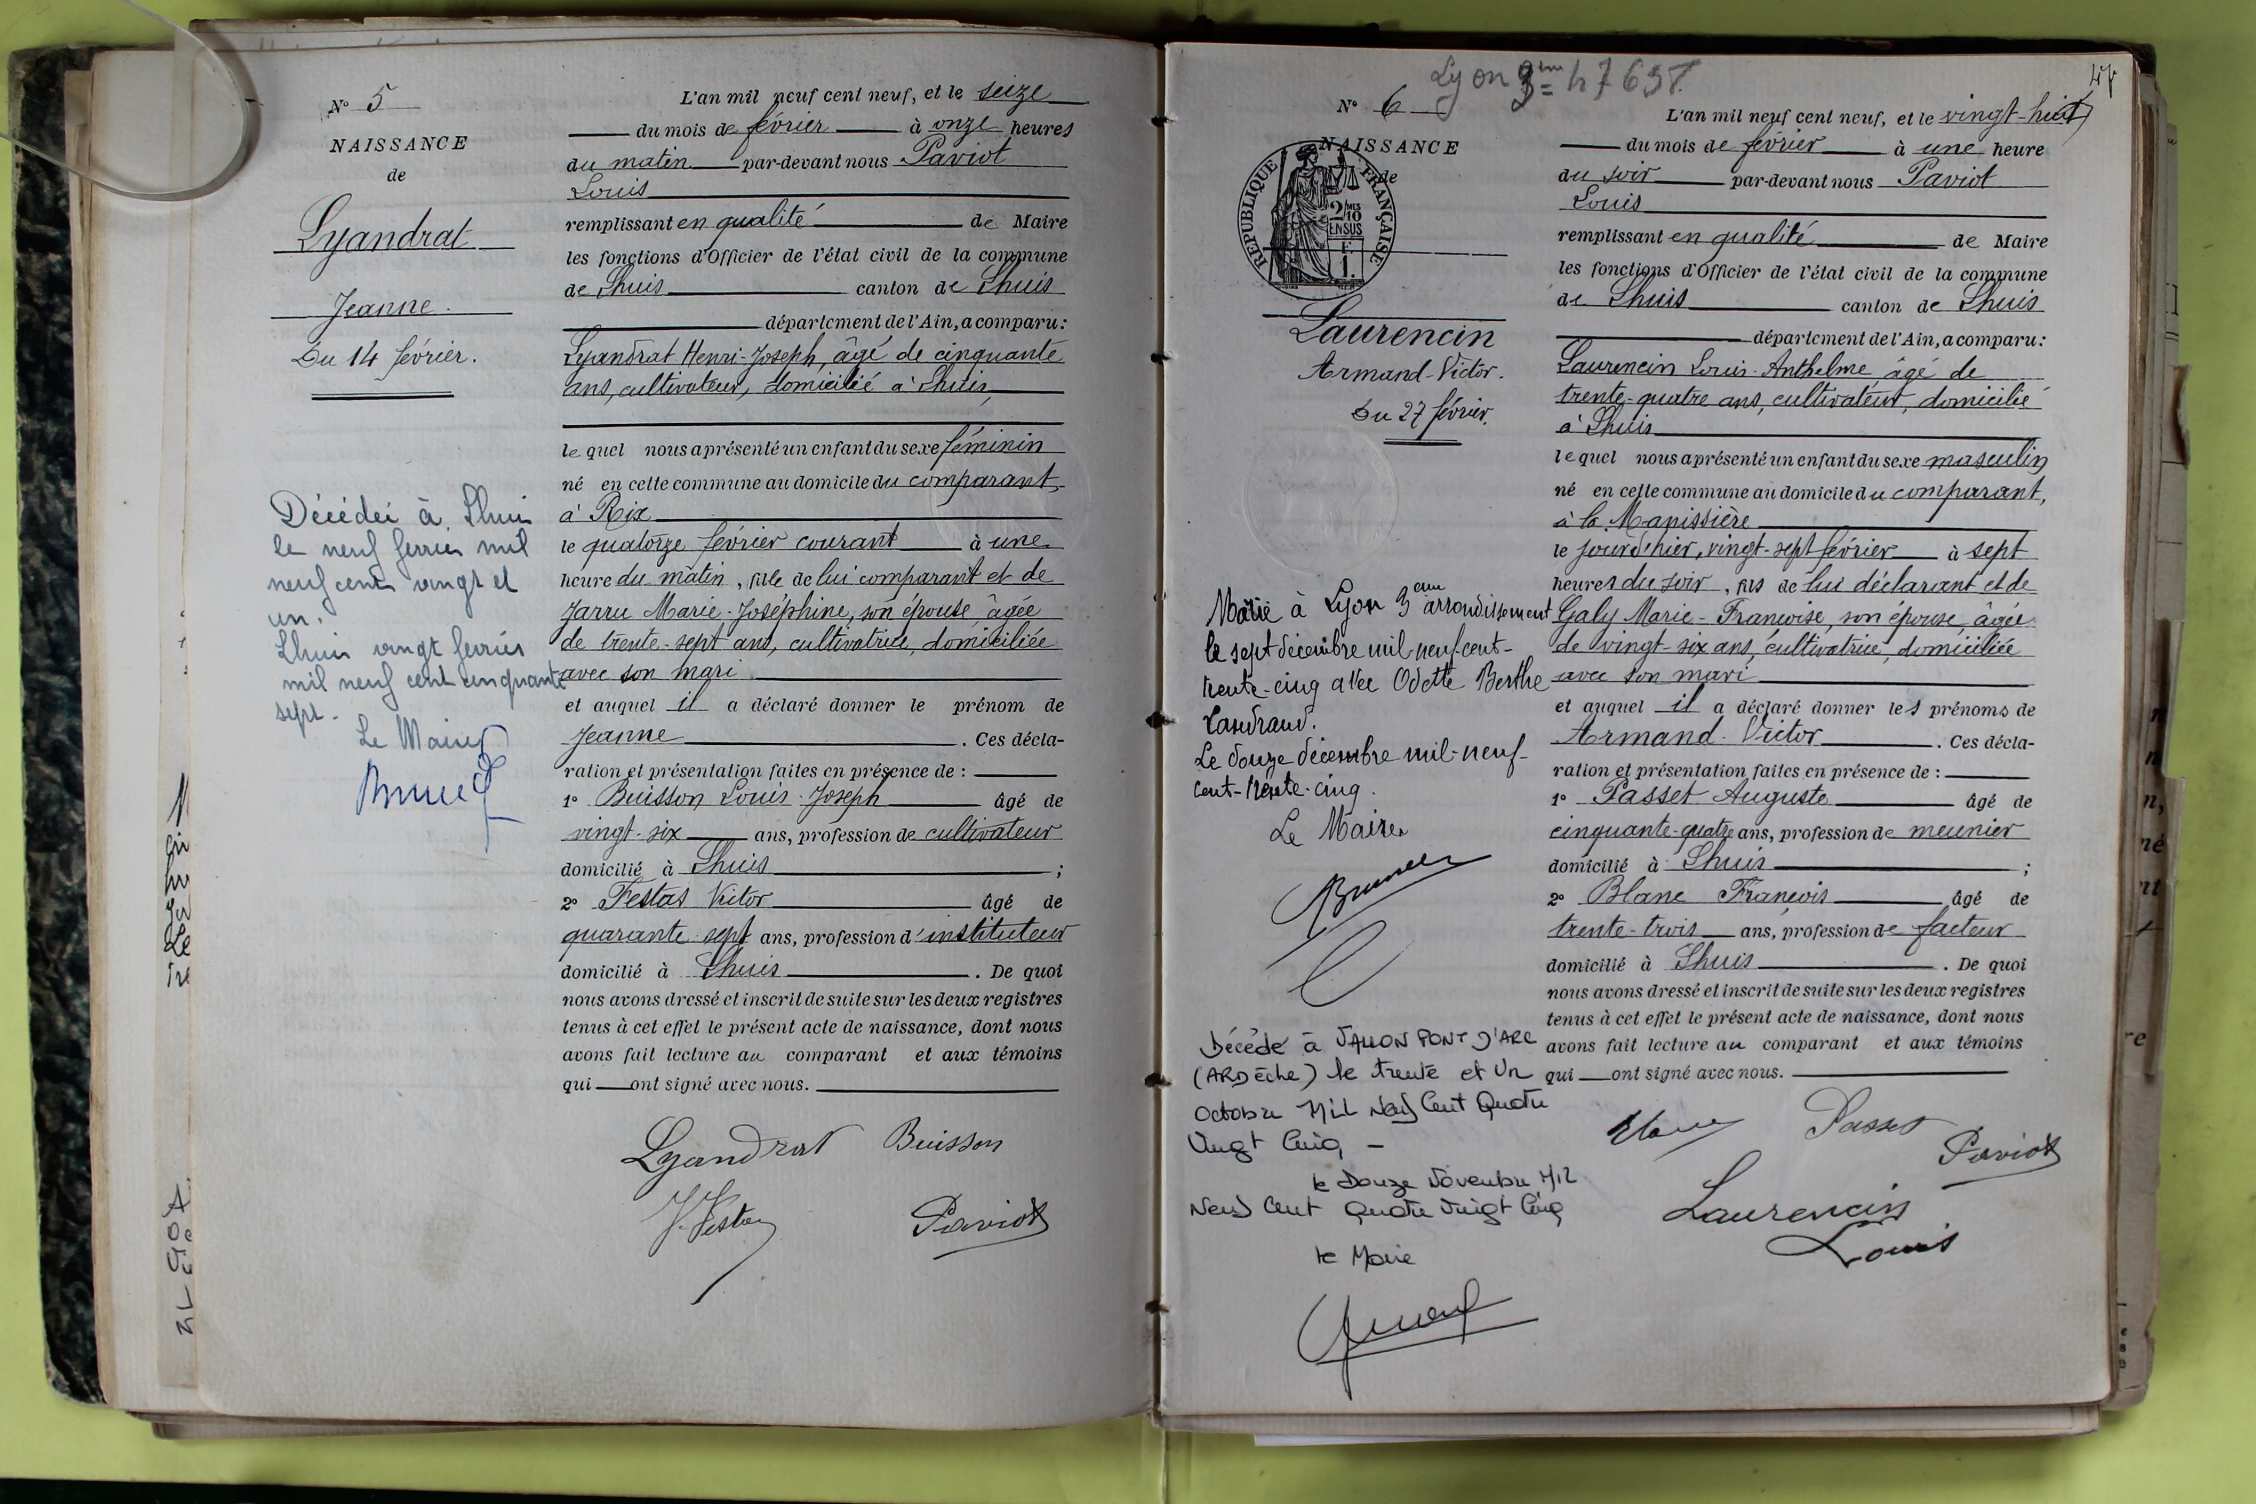 N° 5
NAISSANCE
de
Lyandrat
Jeanne.
Du 14 février.
Décédeé à Lhuis
le neuf ferrier mil
neuf cent vingt et
un.
Lhuis vingt ferrier
mil neuf cent cinquante
sept.
Le Maire
L'an mil neuf cent neuf, et le seize
du mois de février à onze heures
du matin par-devant nous Paviot
Louis
remplissant en qualité de Maire
les fonctions d'Officier de l'état civil de la commune
de Lhuis canton de Lhuis
département de l'Ain, a comparu:
Lyandrat Henri-Joseph, âgé de cinquante
ans, cultivateur, domicilié à Lhuis,
le quel nous a présenté un enfant du sexe féminin
né en cette commune au domicile du comparant,
à Rix
le quatorze février courant à une
heure du matin, fille de lui comparant et de
Jarru Marie-Joséphine, son épouse âgée
de trente-sept ans, cultivatrice, domiciliée
avec son mari
et auquel il a déclaré donner le prénom de
Jeanne. Ces décla-
ration et présentation faites en présence de :
1° Buisson Louis-Joseph âgé de
vingt-six ans, profession de cultivateur
domicilié à Lhuis ;
2° Festas Victor âgé de
quarante-sept ans, profession d'instituteur
domicilié à Lhuis. De quoi
nous avons dressé et inscrit de suite sur les deux registres
tenus à cet effet le présent acte de naissance, dont nous
avons fait lecture au comparant et aux témoins
qui ont signé avec nous.
Lyandrat Buisson
V. Festas Paviot
Lyon 3ème
47
N° 6
NAISSANCE
de
RÉPUBLIQUE FRANÇAISE
2/10 MES
EN SUS
F
1.
Laurencin
Armand-Victor.
Du 27 février.
Marié à Lyon 3eme arrondissement
le sept décembre mil-neuf cent-
trente-cinq avec Odette Berthe
Le douze décembre mil-neuf-
cent-trente-cinq.
Le Maire
Décédé à VALLON PONT D'ARC
(ARDèche) le trente et un
octobre Mil Neuf Cent Quatre
Vingt Cinq
le Douze Novembre Mil
Neuf Cent Quatre Vingt Cinq
le Maire
L'an mil neuf cent neuf, et le vingt-huit
du mois de février à une heure
du soir par-devant nous Paviot
Louis
remplissant en qualité de Maire
les fonctions d'Officier de l'état civil de la commune
de Lhuis canton de Lhuis
département de l'Ain, a comparu:
Laurencin Louis-Anthelme âgé de
trente-quatre ans, cultivateur, domicilié
à Lhuis
le quel nous a présenté un enfant du sexe masculin
né en cette commune au domicile du comparant,
à la Manissière
le jour d'hier, vingt-sept février à sept
heures du soir, fils de lui déclarant et de
Galy Marie-Françoise, son épouse, âgée
de vingt-six ans, cultivatrice, domiciliée
avec son mari
et auquel il a déclaré donner les prénoms de
Armand-Victor. Ces décla-
ration et présentation faites en présence de :
1° Passet Auguste âgé de
cinquante-quatre ans, profession de meunier
domicilié à Lhuis ;
2° Blanc François âgé de
trente-trois ans, profession de facteur
domicilié à Lhuis. De quoi
nous avons dressé et inscrit de suite sur les deux registres
tenus à cet effet le présent acte de naissance, dont nous
avons fait lecture au comparant et aux témoins
qui ont signé avec nous.
Blanc Passet
Paviot
Laurencin
Louis